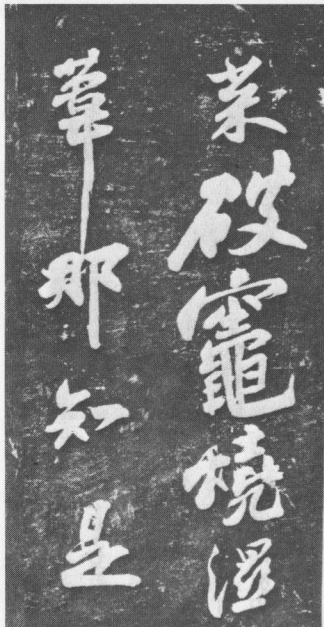 菜破竈燒濕
葦那知是